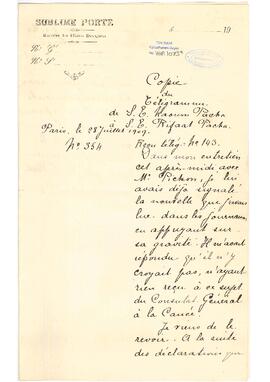 SUBLIME PORTE
6 19
N° G
N° S
Copie
du
Télégramme
de S. E. Naoum Pacha
à S. E. Rifaat Pacha.
Paris, le 28 Juillet 1909.
N° 354 Reçu télég. N° 143.
Dans mon entretien
cet après-midi avec
Mr Pichon, je lui
avais déjà signalé
la nouvelle que j'avais
lue dans les journaux
en appuyant sur
sa gravité. Il m'avait
répondu qu'il n'y
croyait pas, n'ayant
rien reçu à ce sujet
du Consulat Général
à la Canée.
Je viens de le
revoir. A la suite
des déclarations que